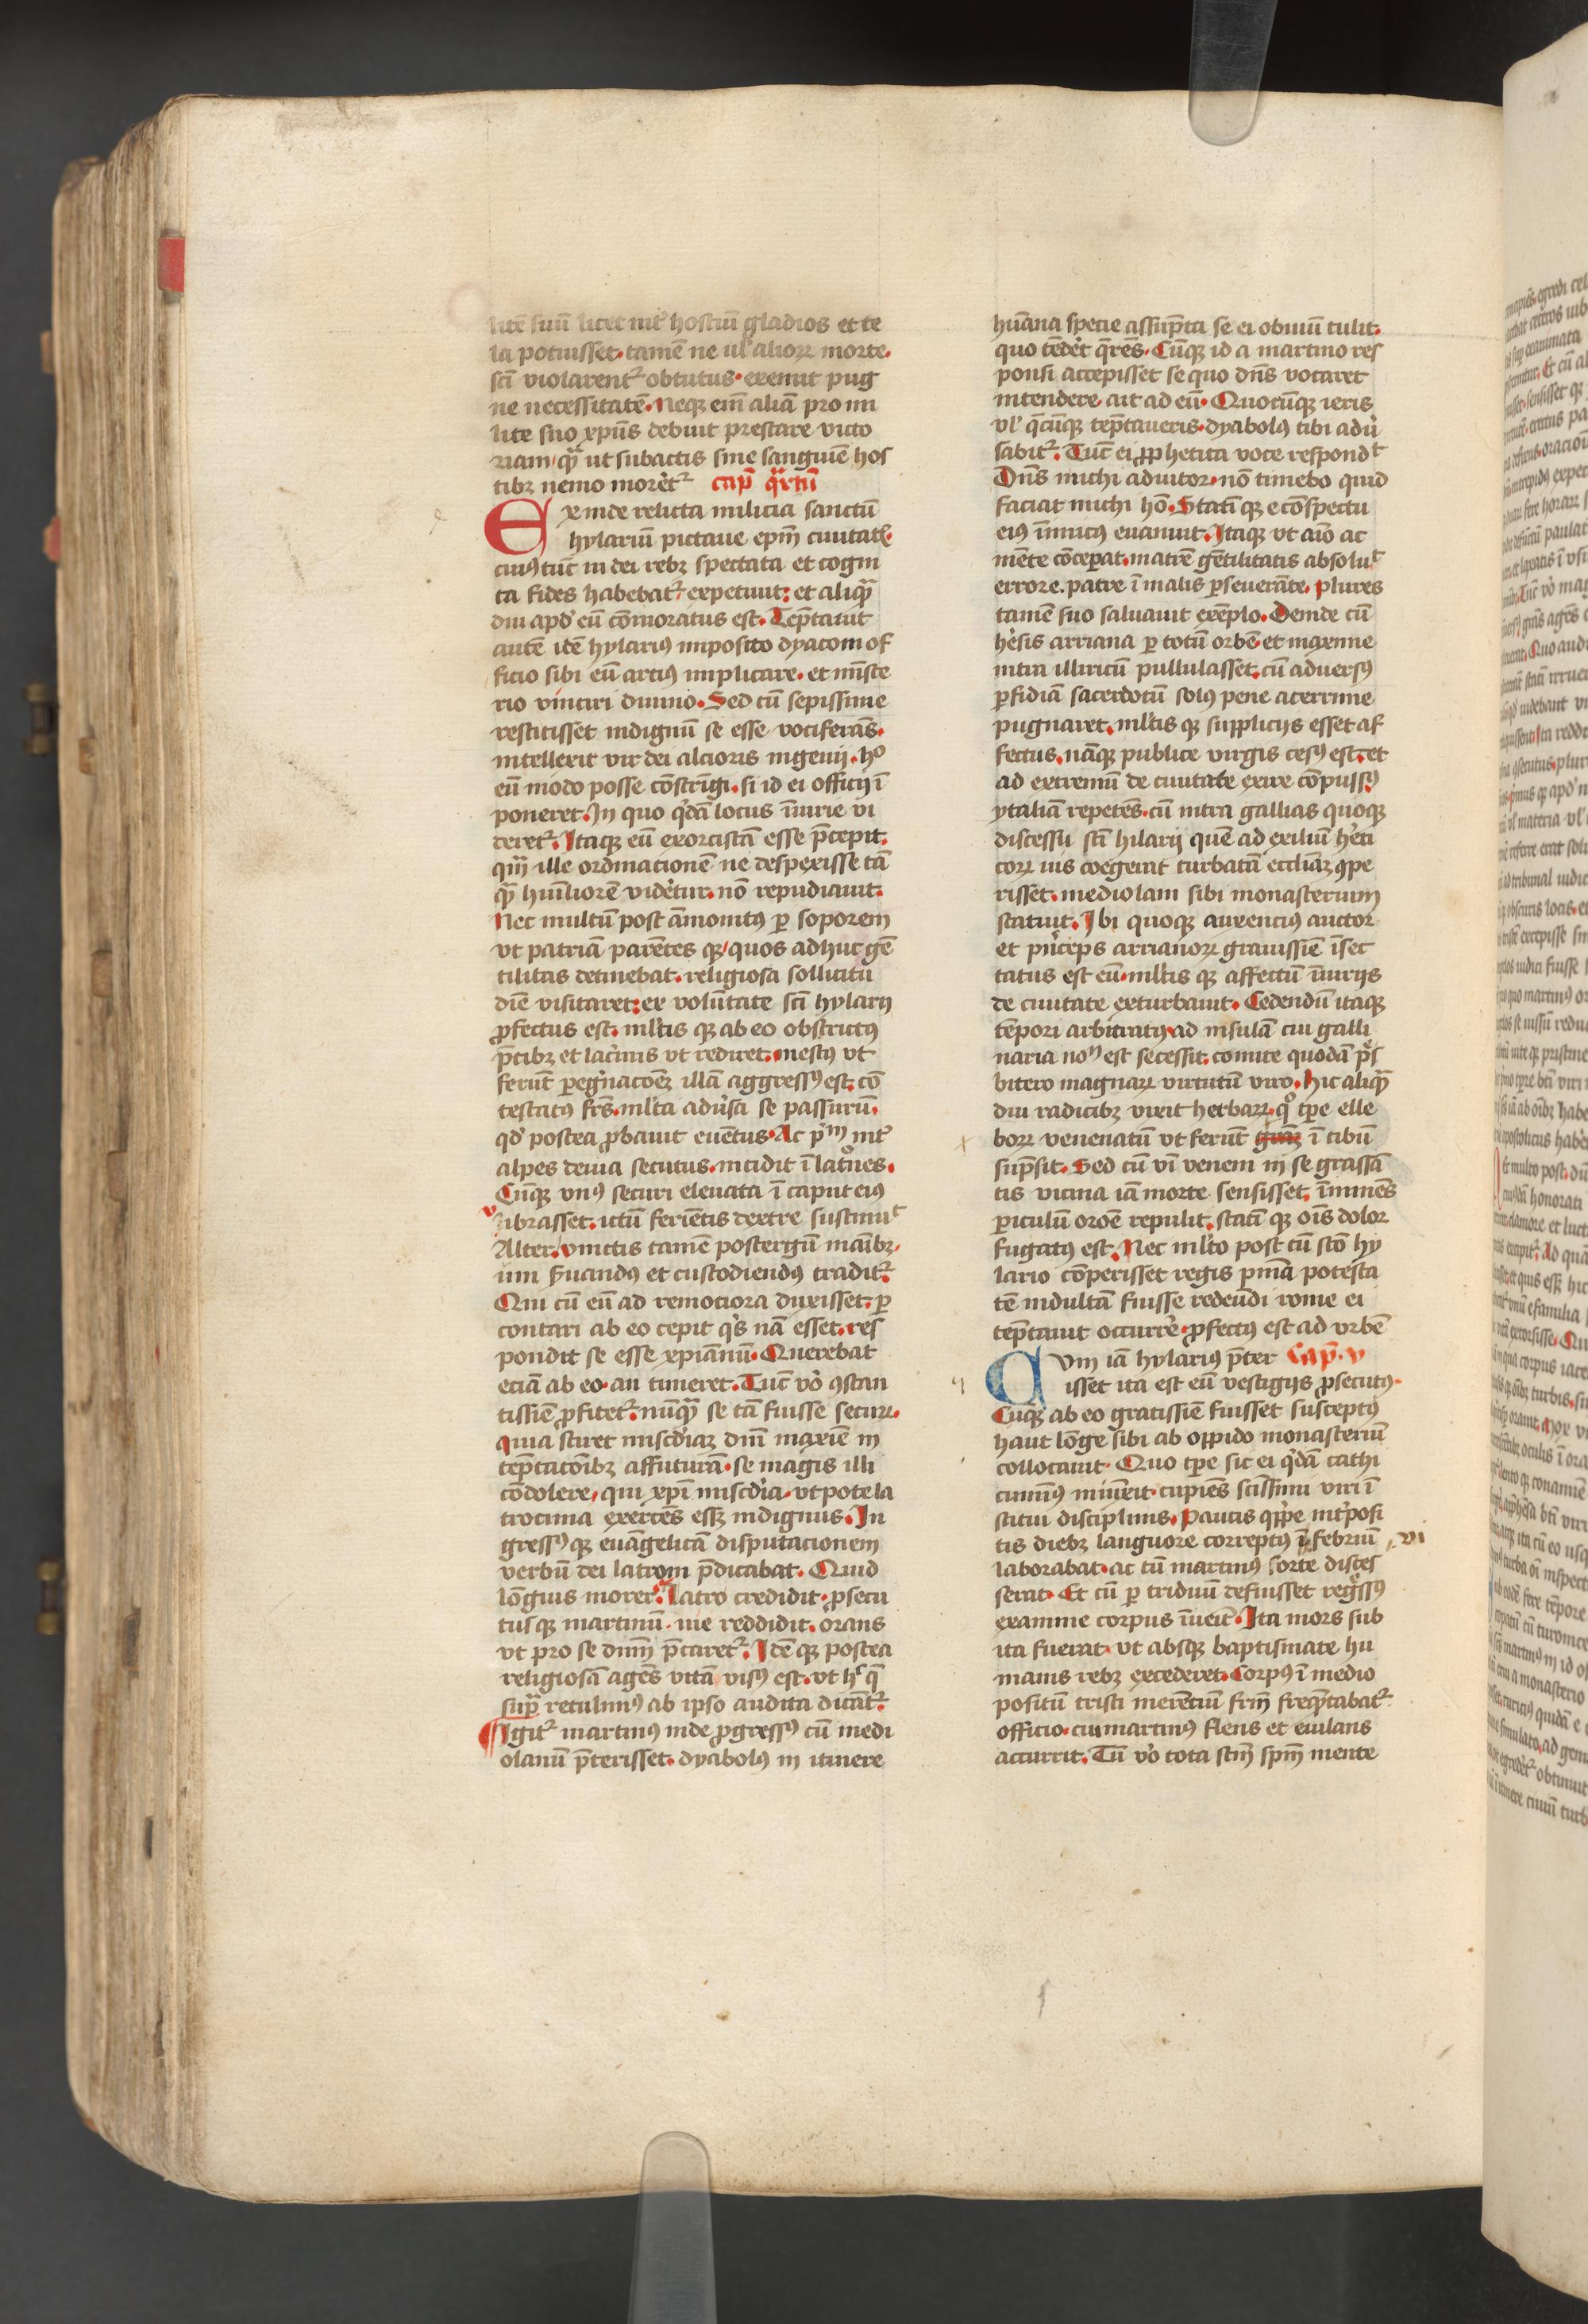 litē suū licet int̾ hostiū gladios et te
la potuisset. tamē ne ul̾ alioꝝ morte.
scī violarent᷑ obtutus. exemit pug
ne necessitatē. Neqꝫ eni̅ aliā pro mi
lite suo xp̄us debuit prestare victo
riam/ qᷓ ut subactis sine sanguīe hos
tibꝫ nemo moret᷑ cap̄ qᷓrtū
Exinde relicta milicia sanctū
hylariū pictaue ep̄m ciuitatꝭ.
cuiꝰ tūc in dei rebꝫ spectata et cogni
ta fides habebat᷑. expetiuit: et aliqᷓ
diu apd̾ eū cōmoratus est. Tēptauit
autē idē hylariꝰ imposito dyaconi of
ficio sibi eū artiꝰ implicare. et mīste
rio vinciri diuino. Sed cū sepissime
restitisset indignū se esse vociferās.
intellexit vir dei alcioris ingenij. hͦ
eū modo posse cōstrīgi. si id ei officij ī
poneret. In quo qͥdā locus īiurie vi
deret᷑. Itaqꝫ eū exorcistā esse p̄cepit.
qm̄ ille ordinationē ne despexisse tā
qᷓ hūiliorē videretur. nō repudiauit.
Nec multū post āmonitꝰ ꝑ soporem
vt patriā parētes qꝫ/ quos adhuc gē
tilitas detinebat. religiosa sollicitu
diē visitaret: ex volūtate scī hylarij
ꝓfectus est. ml̾tis qꝫ ab eo obstrictꝰ
p̄cibꝫ et lacͥmis vt rediret. mestꝰ vt
ferūt ꝑegͥnacōeꝫ illā aggressꝰ est. cō
testatꝰ frēs. ml̾ta adūsa se passurū.
qd̾ postea ꝓbauit euētus. Ac pͥm̄ int̾
alpes deuia secutus. incidit ī latͦnes.
Cūqꝫ vnꝰ securi eleuata ī caput eiꝰ
vibrasset. ictū feriētis dextre sustinuᵗ
Alter. vinctis tamē postergū manibꝫ.
uni ẜuandꝰ et custodiendꝰ tradit᷑.
Qui cū eū ad remociora duxisset. ꝑ
contari ab eo cepit qͥs nā esset. res
pondit se esse xp̄ianū. Querebat
eciā ab eo. an timeret. Tūc vͦo ꝯstan
tissiē ꝓfitet᷑. nūqᷓ se tā fuisse securꝝ.
quia sciret misc̾diaꝫ dnī maxiē in
tēptacōibꝫ affuturā. se magis illi
cōdolere/ qui xp̄i misc̾dia. vtpote la
trocinia exercēs esseꝫ indignus. In
gressꝰ qꝫ euāgelicā disputacionem
verbū dei latroni p̄dicabat. Quid
lōgius morer. latro credidit. ꝓsecu
tus qꝫ martinū. vie reddidit. orans
vt pro se dnm̄ p̄caret᷑. Idē qꝫ postea
religiosā agēs vitā visꝰ est. vt hͨ qͣe
supᷓ retulimꝰ ab ipso audita dicāt᷑.
Igit᷑ martinꝰ inde ꝓgressꝰ cū medi
olanū p̄terisset. dyabolꝰ in itinere
hūana specie assūpta se ei obuiū tulit.
quo tēderet q̄rēs. Cūqꝫ id a martino res
ponsi accepisset se quo dn̄s vocaret
intendere. ait ad eū. Quocūqꝫ ieris
vl̾ q̄cūqꝫ tēptaueris. dyabolꝰ tibi adu̾
sabit᷑. Tūc ei ꝓphetica voce respondᵗ
Dn̄s michi adiutor. nō timebo quid
faciat michi hō. Statī qꝫ e cōspectu
eiꝰ īimicꝰ euanuit. Itaqꝫ vt aīo ac
mēte cōceperat. matrē gētilitatis absoluᵗ
errore. patre ī malis ꝑseuerāte. plures
tamē suo saluauit exēplo. Deinde cū
he̾sis arriana ꝑ totū orbē. et maxime
intra illiricū pullulasset. cū aduersꝰ
ꝑfidiā sacerdotū solꝰ pene acerrime
pugnaret. ml̾tis qꝫ supplicijs esset af
fectus. nāqꝫ publice virgis cesꝰ est. et
ad extremū de ciuitate exire cōpulsꝰ
ytaliā repetēs. cū intra gallias quoqꝫ
discessu scī hilarij quē ad exiliū he̾ti
coꝝ uis coegerat turbatā eccliāꝫ ꝯpe
risset. mediolani sibi monasterium
statuit. Ibi quoqꝫ auxenciꝰ auctor
et pͥnceps arrianoꝝ grauissiē īsec
tatus est eū. ml̾tis qꝫ affectū īiurijs
de ciuitate exturbauit. Cedendū itaqꝫ
tēpori arbitratꝰ. ad insulā cui galli
naria noⁿ est secessit. comite quodā pͤs
bitero magnaꝝ virtutū viro. Hic aliqᷓ
diu radicibꝫ vixit herbaꝝ. qͦ tp̄e elle
boꝝ venenatū vt ferūt ī cibū
sūpsit. Sed cū vī veneni in se grassā
tis vicina iā morte sensisset. īminēs
ꝑiculū orōe repulit. statī qꝫ oīs dolor
fugatꝰ est. Nec ml̾to post cū scō hy
lario cōperisset regis pn̄ia potesta
tē indultā fuisse redeūdi rome ei
tēptauit occurrere. ꝓfectꝰ est ad vrbē
Cvm iā hylariꝰ p̄ter Cap̄. v
isset ita est eū vestigijs ꝓsecutꝰ.
Cūqꝫ ab eo gratissiē fuisset susceptꝰ
haut lōge sibi ab oppido monasteriū
collocauit. Quo tp̄e sic ei qͥdā cathi
cuminꝰ iniūxit. cupiēs sc̄issimi viri ī
stitui disciplinis. Paucis qͥpe int̾posi
tis diebꝫ languore correptꝰ ī febriū vi
laborabat. ac tū martinꝰ sorte disces
serat. Et cū ꝑ triduū defuisset regᷓssꝰ
examine corpus īueit. Ita mors sub
ita fuerat. vt absqꝫ baptismate hu
manis rebꝫ excederet. Corpꝰ ī medio
positū tristi merētiū frm̄ freq̄ntabat᷑
officio. cū martinꝰ flens et eiulans
accurrit. Tū vͦo tota scm̄ sp̄m mente